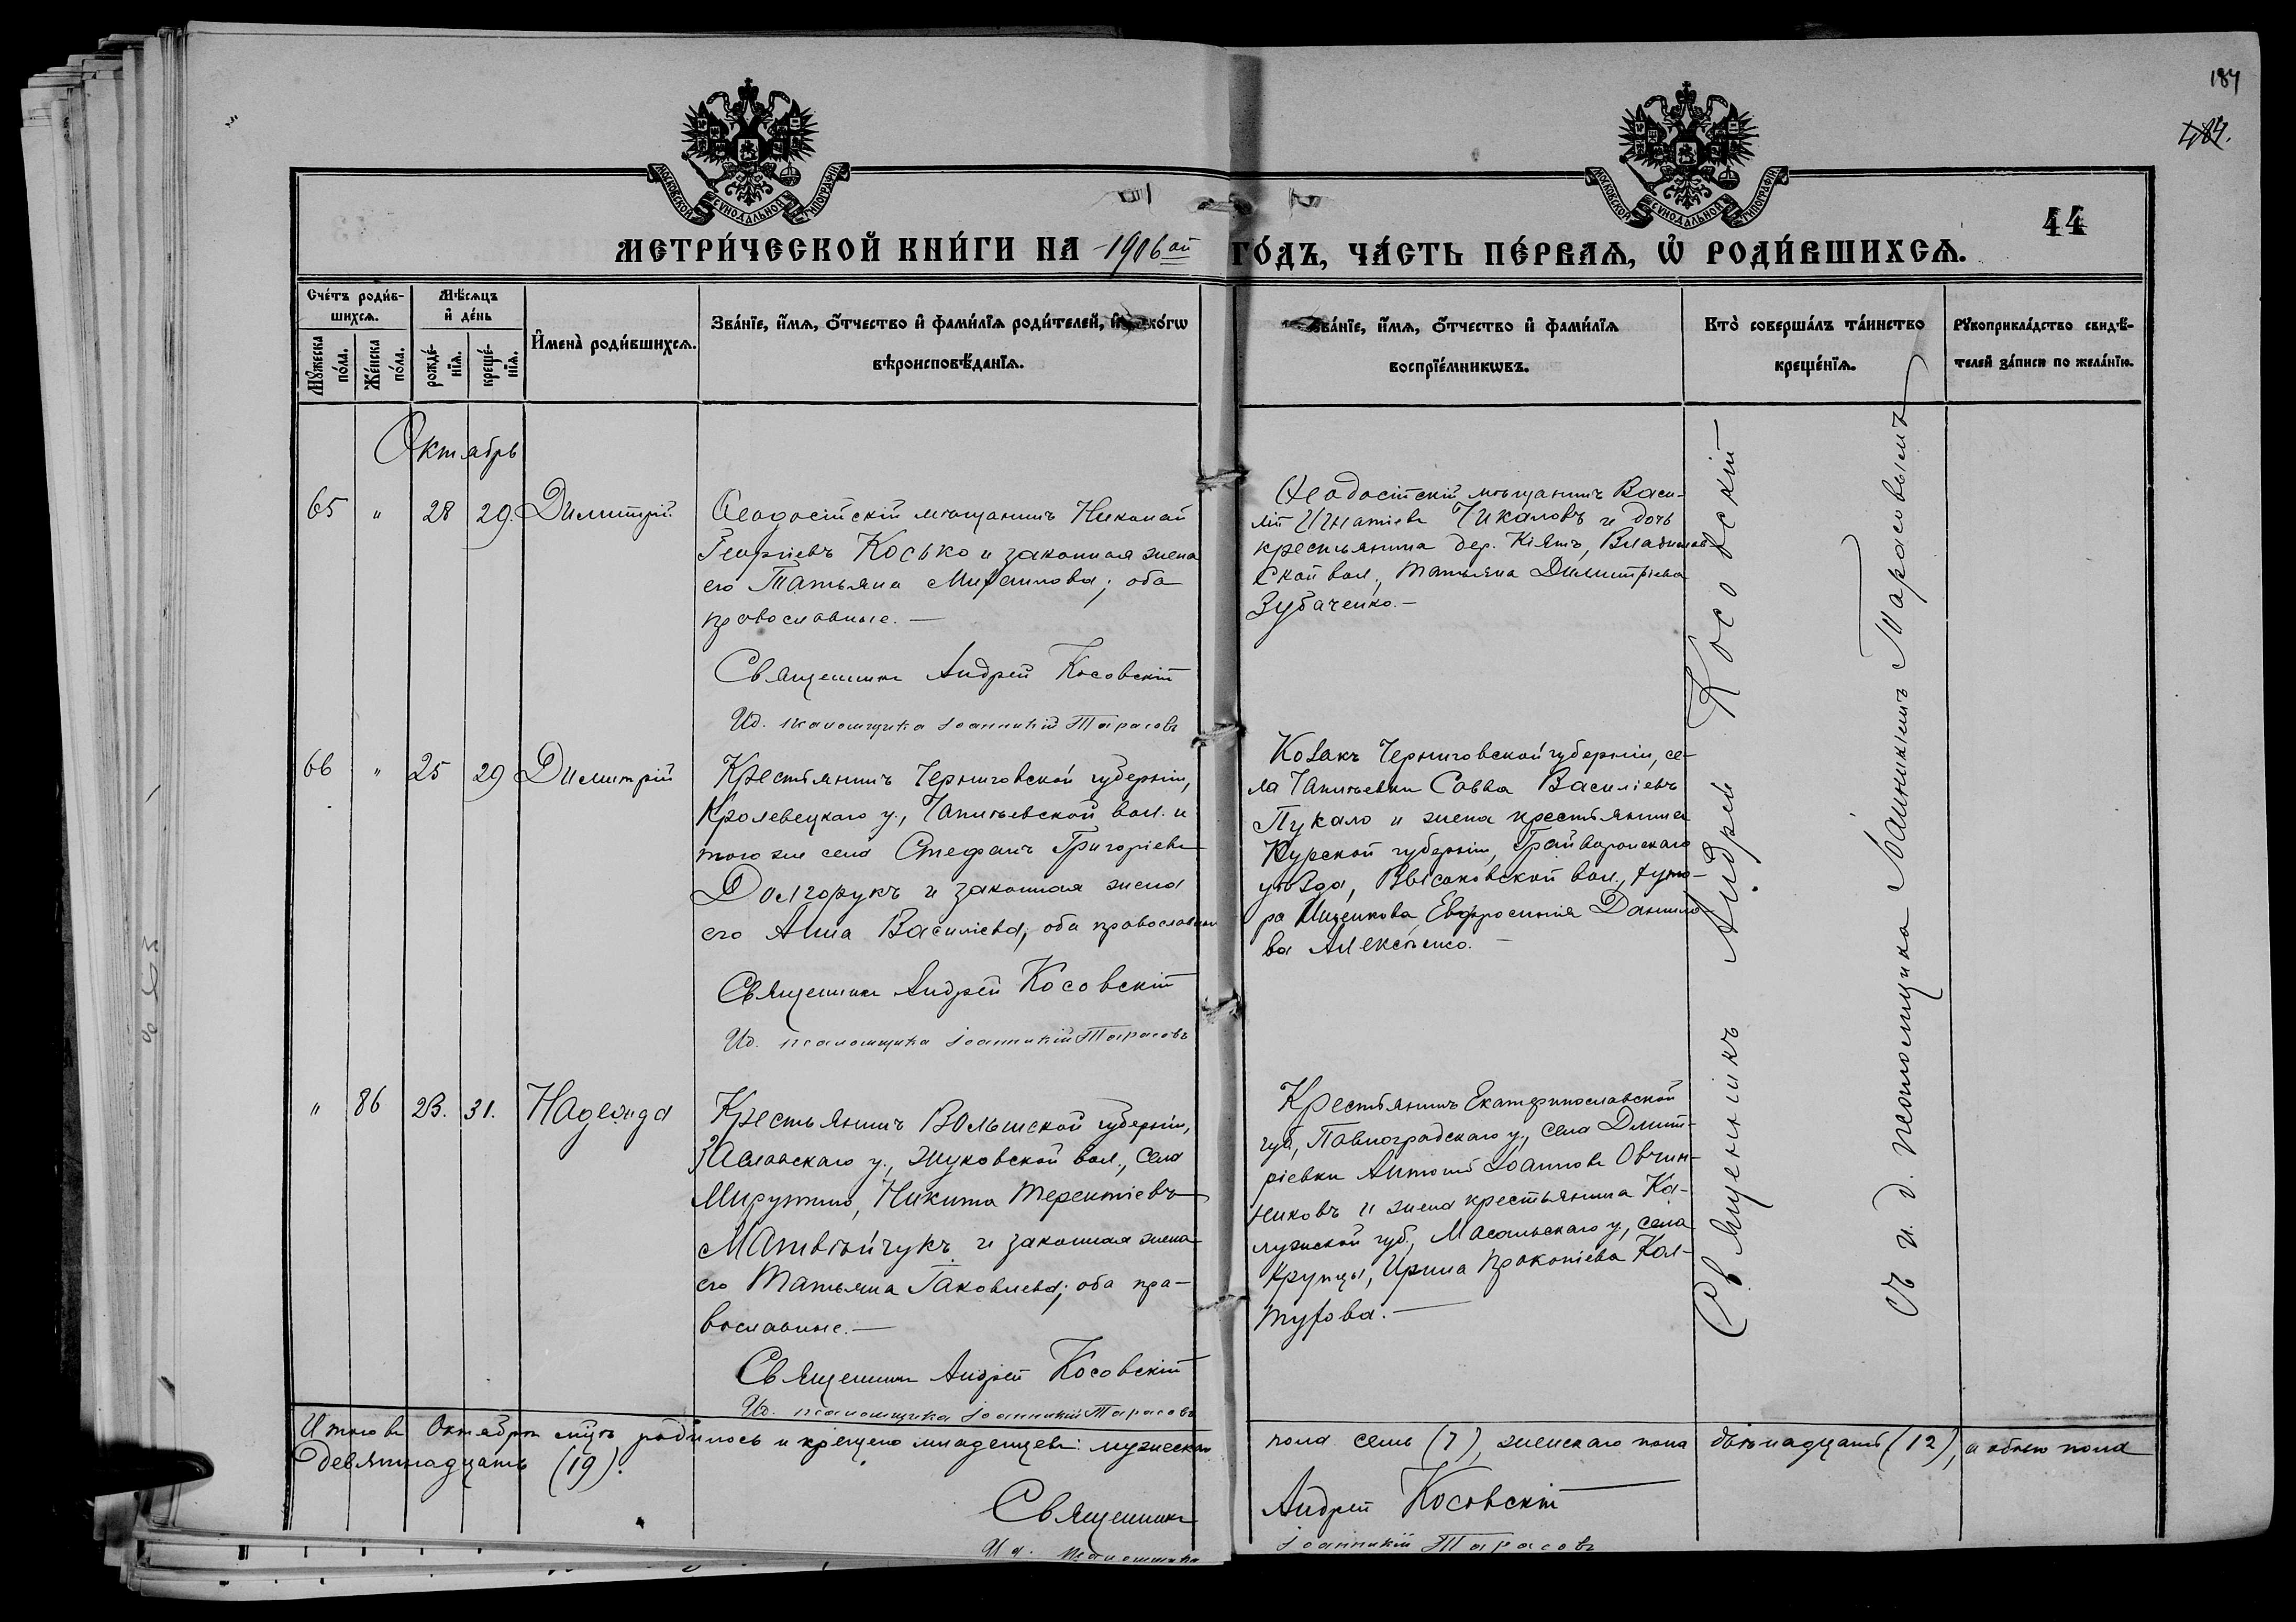 184
484.
МОСКОВСКОЙ СѴНОДАЛЬНОЙ ТИПОГРАФІИ
МОСКОВСКОЙ СѴНОДАЛЬНОЙ ТИПОГРАФІИ
44
МЕТРИ́ЧЕСКОЙ КНИ́ГИ НА 1906ой ГО́ДЪ, ЧА́СТЬ ПЕ́РВАЯ, Ѡ҆ РОДИ́ВШИХСЯ.
Сче́тъ роди́в-
шихся.
Мꙋжеска по́ла.
Же́нска по́ла.
Мѣ́сяцъ
и҆ де́нь
рожде́-
нїя.
креще́-
нїя.
И҆мена̀ роди́вшихся.
Зва́нїе, и҆́мя, ѻ҆́тчество и҆ фами́лїя роди́телей, и҆ како́гѡ
вѣроисповѣ́данїя.
Зва́нїе, и҆́мя, ѻ҆́тчество и҆ фами́лїя
воспрїе́мникѡвъ.
Кто̀ соверша́лъ та́инство
креще́нїя.
Рꙋкоприкла́дство свидѣ́-
телей за́писи по жела́нїю.
Октябрь
65 " 28 29. Димитрій
Ѳеодосійскій мѣщанинъ Николай
Георгіевъ Косько и законная жена
его Татьяна Михаилова; оба
православные. —
Священникъ Андрей Косовскій
И.д. псаломщика Іоанникій Тарасовъ
Ѳеодосійскій мѣщанинъ Васи-
лій Игнатіевъ Чикаловъ и дочь
крестьянина дер. Кіятъ, Владислав-
ской вол., Татьяна Димитріева
Зубаченко. —
66 " 25 29 Димитрій
Крестьянинъ Черниговской губерніи,
Кролевецкаго у., Чапліевской вол. и
того же села Стефанъ Григоріевъ
Долгорукъ и законная жена
его Анна Василіева; оба православные
Священникъ Андрей Косовскій
И.д. псаломщика Іоанникій Тарасовъ
Козакъ Черниговской губерніи, се-
ла Чапліевки Савва Василіевъ
Пукало и жена крестьянина
Курской губерніи, Грайворонскаго
уѣзда, Высоковской вол., хуто-
ра Ищенкова, Евфросинія Данило-
ва Алексѣенко. —
" 86 23. 31. Надежда
Крестьянинъ Волынской губерніи,
Заславскаго у., Жуковской вол., села
Мирутино, Никита Терентіевъ
Матвѣйчукъ и законная жена
его Татьяна Іаковлева; оба пра-
вославные. —
Священникъ Андрей Косовскій
И.д. псаломщика Іоанникій Тарасовъ
Крестьянинъ Екатеринославской
губ., Павлоградскаго у., села Дмит-
ріевки Антоній Іоанновъ Овчин-
никовъ и жена крестьянина Ка-
лужской губ., Масальскаго у., села
Крупцы, Ирина Прокопіева Кал-
тухова. —
Священникъ Андрей Косовскій
съ и.д. псаломщика Іоанникіемъ Тарасовымъ
Итого въ Октябрѣ мцѣ родилось и крещено младенцевъ: мужеска пола семь (7), женскаго пола двѣнадцать (12), а обоего пола
девятнадцать (19).
Священникъ Андрей Косовскій
И.д. псаломщика Іоанникій Тарасовъ